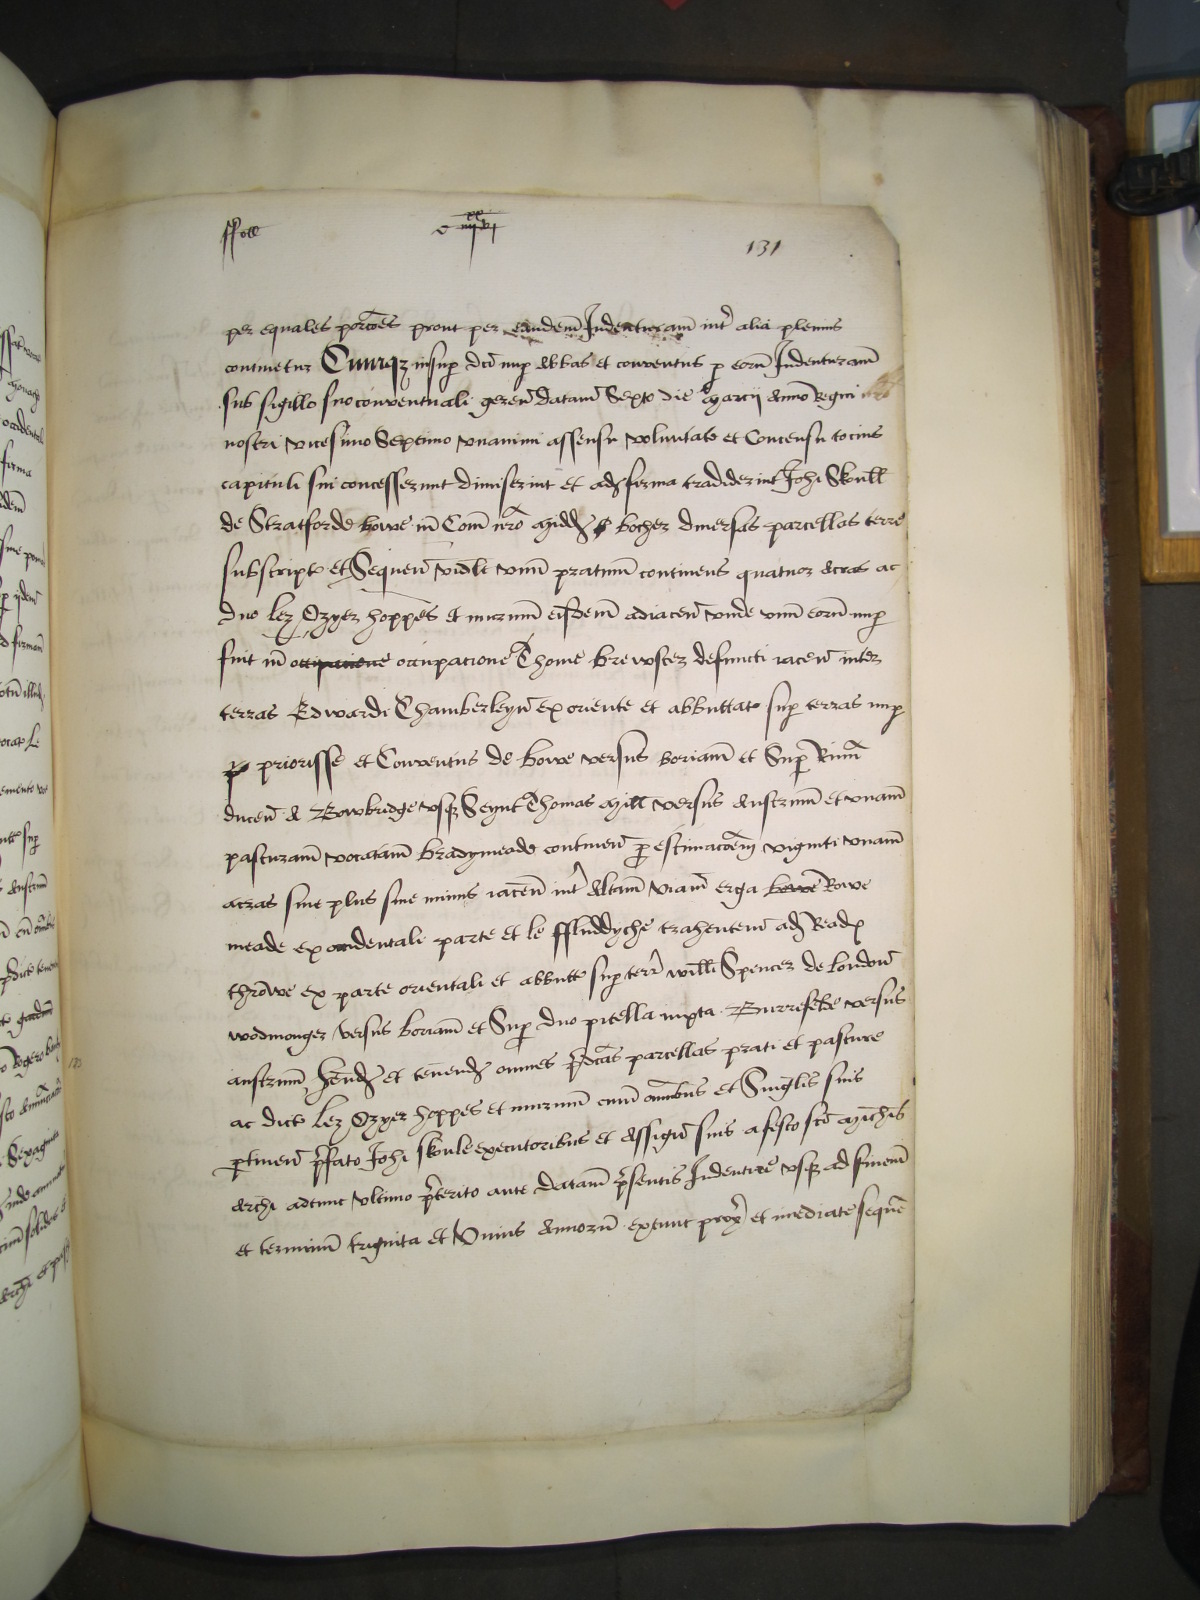 ffoll
131
per equales porcões prout per eandem̃ Indenturam̃ int̃ alia plenius
continetur Cumqz insup dc̃i nup Abbas et conventus p eorũ Indenturam̃
sub sigillo suo conventuali gereñ datam̃ Sexto die Marcij Anno Regni
nostri vicesimo Septimo unanimi assensu voluntate et Concensu tocius
capituli sui concesserunt dimiserint et ad firma tradiderint Joh̃i Skoull
de Stratforde bowe in Com̃ nr̃o Midd bocher diversas parcellas terre
subscript et Sequeñ vidl̃t unũ pratum̃ continens quatuor Acras ac
duo lez Ozyer hoppes et murum̃ eisdem̃ adiaceñ unde unũ eorũ nup
fuit in occupacione occupacione Thome Brewster defuncti iaceñ inter
terras Edwardi Chamberleyñ ex oriente et abbuttat sup terras nup
p priorisse et Conventus de Bowe versus boriam̃ et Sup Rivũ
duceñ A Bowbridge usqz Seynt Thomas Myll versus Austrum̃ et unam̃
pasturam̃ vocatam̃ bradymeade contineñ p estimacõem viginti unam̃
acras sive plus sive minus iaceñ int̃ Altam̃ viam̃ erga bowe Rowe
meade ex occidentali parte et le ffluddyche trahentem̃ ad Read
throwe ex parte orientali et abbutt sup terr̃ Will̃i Spencer de londoñ
wodmonger versus boriam̃ et Sup duo pitella iuxta Burrefelde versus
austrum̃ Hẽnd et tenend omnes p̃dc̃as parcellas prati et pasture
ac dict lez Ozyer hoppes et murum̃ cum om̃ibus et Sing̃lis suis
ptineñ p̃fato Joh̃i skoule executoribus et Assigñ suis a festo sc̃i Mich̃is
Arch̃i adtunc ultimo p̃terito ante datam̃ p̃sentis Indenture usqz ad finem̃
et terminũ triginta et Unius Annorũ extunc prox̃ et imediate sequeñ